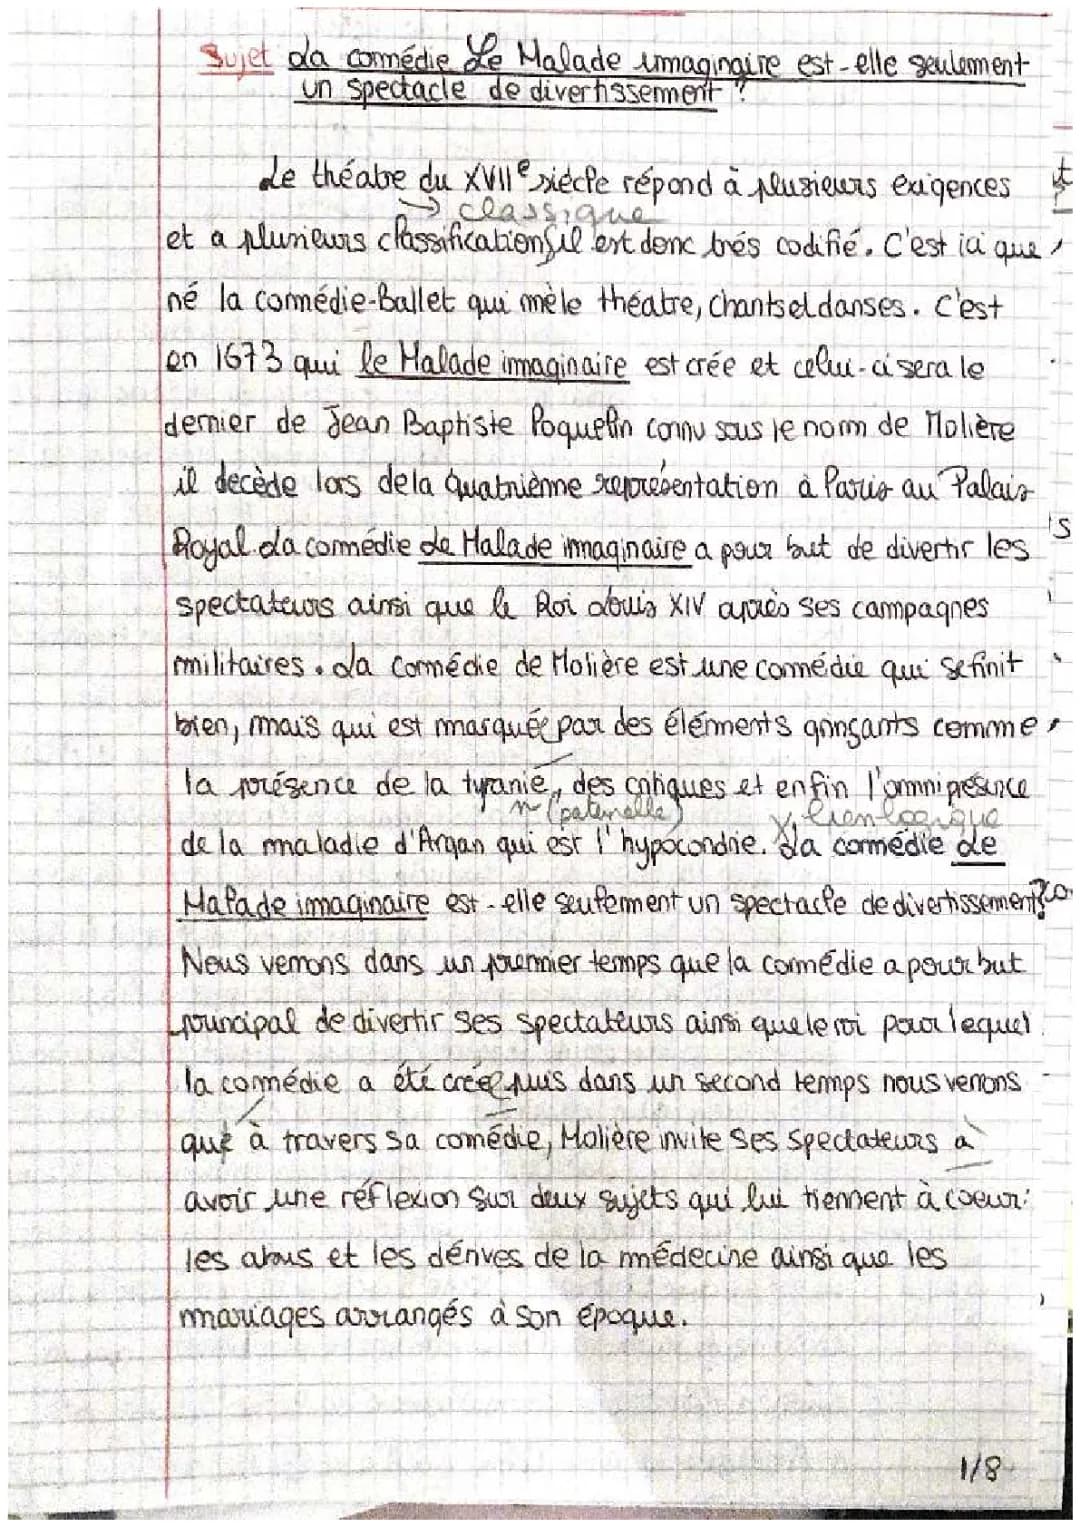 Sujet La comédie Le Malade imaginaire est-elle seulement
un spectacle de divertissement ?
Le théatre du XVII e siècle répond à plusieurs exigences
→ classique
et a plusieurs classifications il est donc très codifié. C'est ici que
né la comédie-Ballet qui mèle théatre, chants et danses. C'est
en 1673 qui le Malade imaginaire est crée et celui-ci sera le
dernier de Jean Baptiste Poquelin connu sous le nom de Molière
il decède lors de la quatrième représentation à Paris au Palais
Royal. La comédie Le Malade imaginaire a pour but de divertir les
spectateurs ainsi que le Roi Louis XIV après ses campagnes
militaires. La comédie de Molière est une comédie qui se finit
bien, mais qui est marquée par des éléments grinçants comme
la présence de la tyranie, des critiques et enfin l'omniprésence
nn (paternelle) lien logique
de la maladie d'Argan qui est l'hypocondrie. La comédie Le
Malade imaginaire est-elle seulement un spectacle de divertissement?
Nous verrons dans un premier temps que la comédie a pour but
principal de divertir ses spectateurs ainsi que le roi pour lequel
la comédie a été créée puis dans un second temps nous verrons
que à travers sa comédie, Molière invite ses spectateurs à
avoir une réflexion sur deux sujets qui lui tiennent à coeur:
les abus et les dérives de la médecine ainsi que les
mariages arrangés à son époque.
1/8